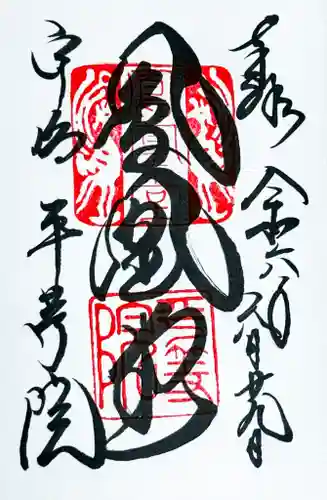 奉拝 令和六年 月廿九日
鳳凰堂
宇治 平等院